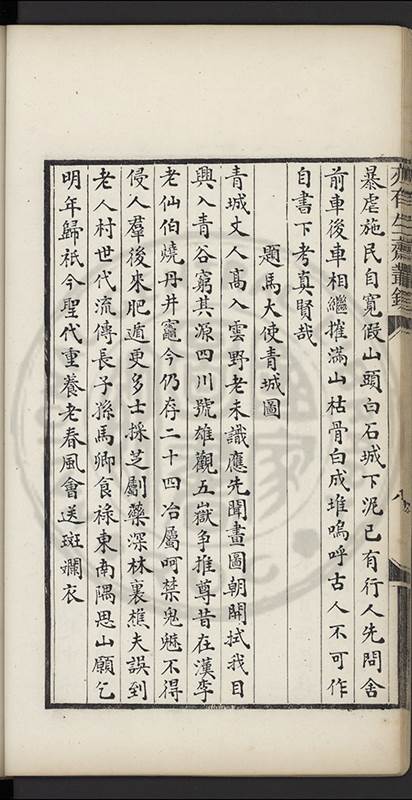 暴虐施民自寬假山頭白石城下泥已有行人先問舍
前車後車相繼摧滿山枯骨白成堆嗚呼古人不可作
自書下考真賢哉
題馬大使青城圖
青城丈人高入雲野老未識應先聞畫圖朝開拭我目
興入青谷窮其源四川號雄觀五嶽爭推尊昔在漢李
老仙伯燒丹井竈今仍存二十四治屬呵禁鬼魅不得
侵人羣後來肥遁更多士採芝劚藥深林裏樵夫誤到
老人村世代流傳長子孫馬卿食祿東南隅思山願乞
明年歸祇今聖代重養老春風會送斑斕衣